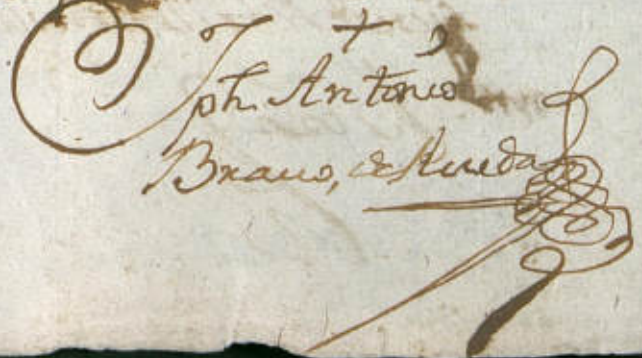 Jph. Antonio
Brauo, de Rueda